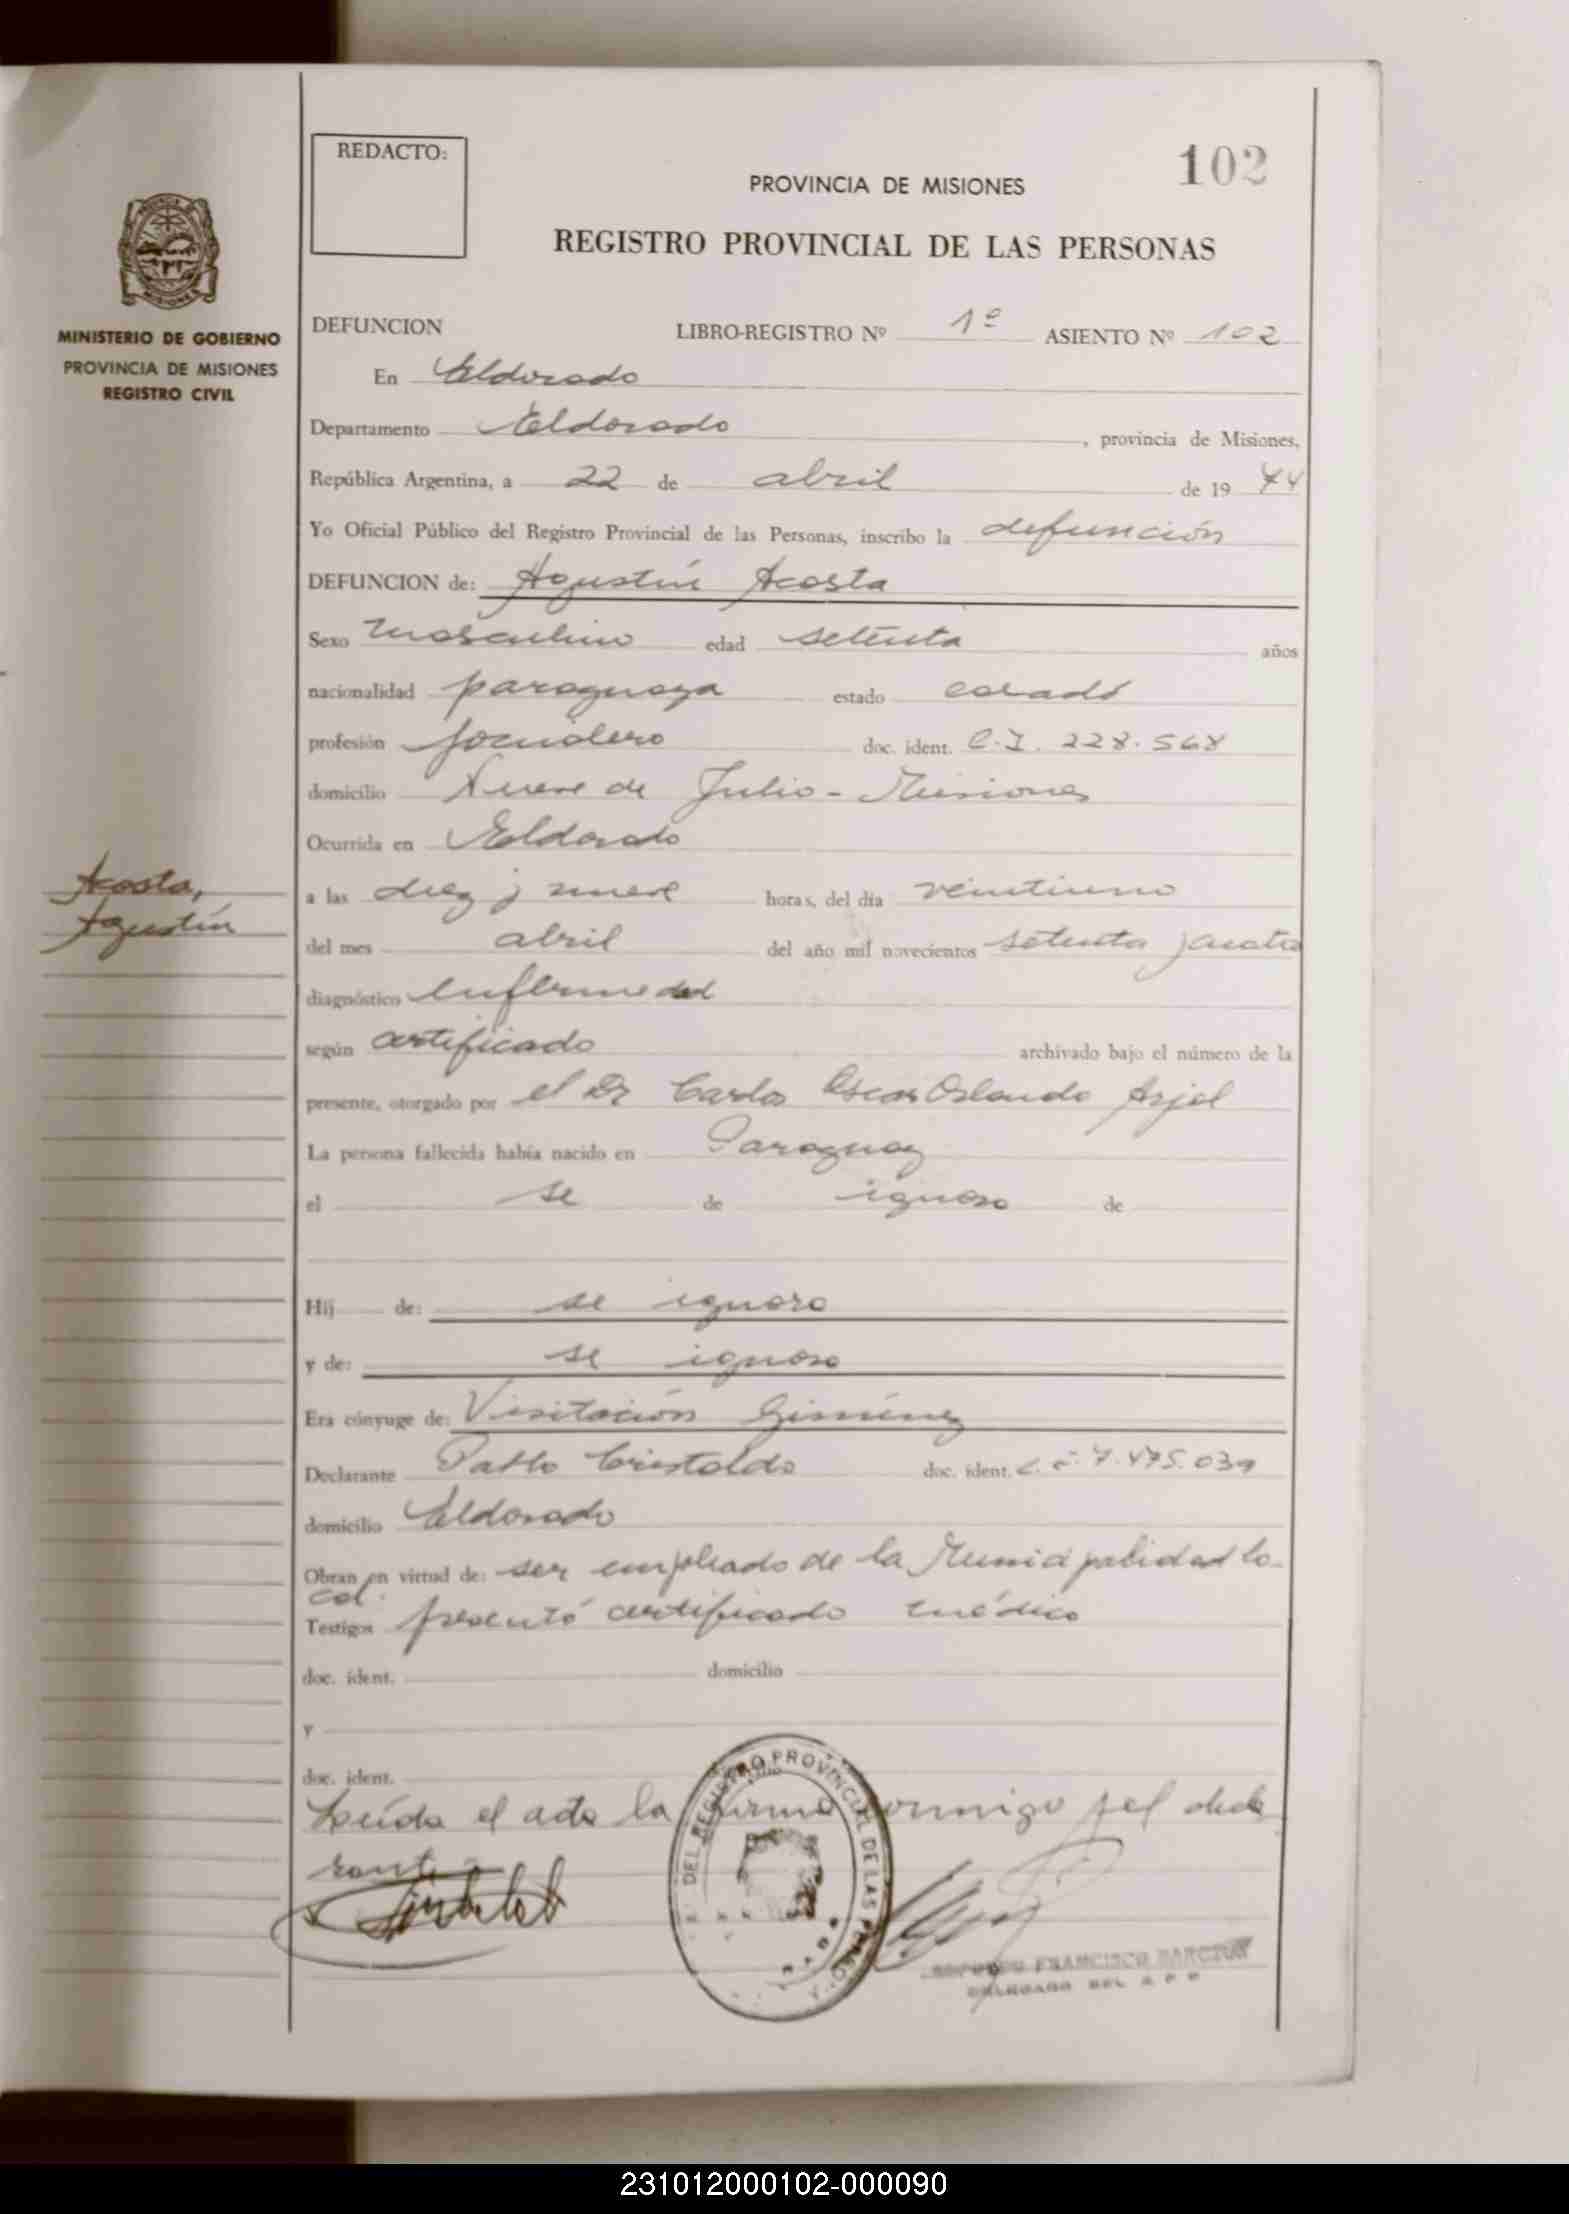 REDACTO:
102
PROVINCIA DE MISIONES
REGISTRO PROVINCIAL DE LAS PERSONAS
MINISTERIO DE GOBIERNO
PROVINCIA DE MISIONES
REGISTRO CIVIL
DEFUNCION LIBRO-REGISTRO Nº 1º ASIENTO Nº 102
En Eldorado
Departamento Eldorado, provincia de Misiones,
República Argentina, a 22 de abril de 19 74
Yo Oficial Público del Registro Provincial de las Personas, inscribo la defunción
DEFUNCION de: Agustín Acosta
Sexo masculino edad setenta años
nacionalidad paraguaya estado casado
profesión jornalero doc. ident. C.I. 228.568
domicilio Nueve de Julio - Misiones
Ocurrida en Eldorado
Acosta,
Agustín
a las diez y nueve horas, del día veintiuno
del mes abril del año mil novecientos setenta y cuatro
diagnóstico enfermedad
según certificado archivado bajo el número de la
presente, otorgado por el Dr Carlos Oscar Orlando Arjol
La persona fallecida había nacido en Paraguay
el se de ignora de
Hij de: se ignora
y de: se ignora
Era cónyuge de: Visitación Giménez
Declarante Pablo Cristaldo doc. ident. 7.475.039
domicilio Eldorado
Obran en virtud de: ser empleado de la Municipalidad lo-
cal.
Testigos presentó certificado médico
doc. ident. domicilio
y
doc. ident.
Leída el acta la firma conmigo el decla
rante
DEL REGISTRO PROVINCIAL DE LAS PERSO
FRANCISCO
DELEGADO DEL R P P
231012000102-000090